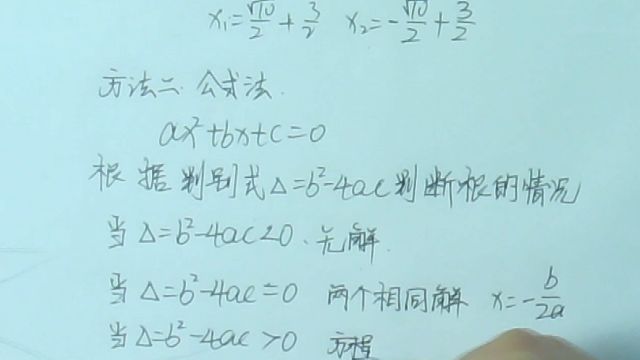 x₁=√10/2+3/2 x₂=-√10/2+3/2
方法二. 公式法.
ax²+bx+c=0
根据判别式Δ=b²-4ac判断根的情况
当Δ=b²-4ac<0. 无解.
当Δ=b²-4ac=0 两个相同解 x=-b/2a
当Δ=b²-4ac>0 方程